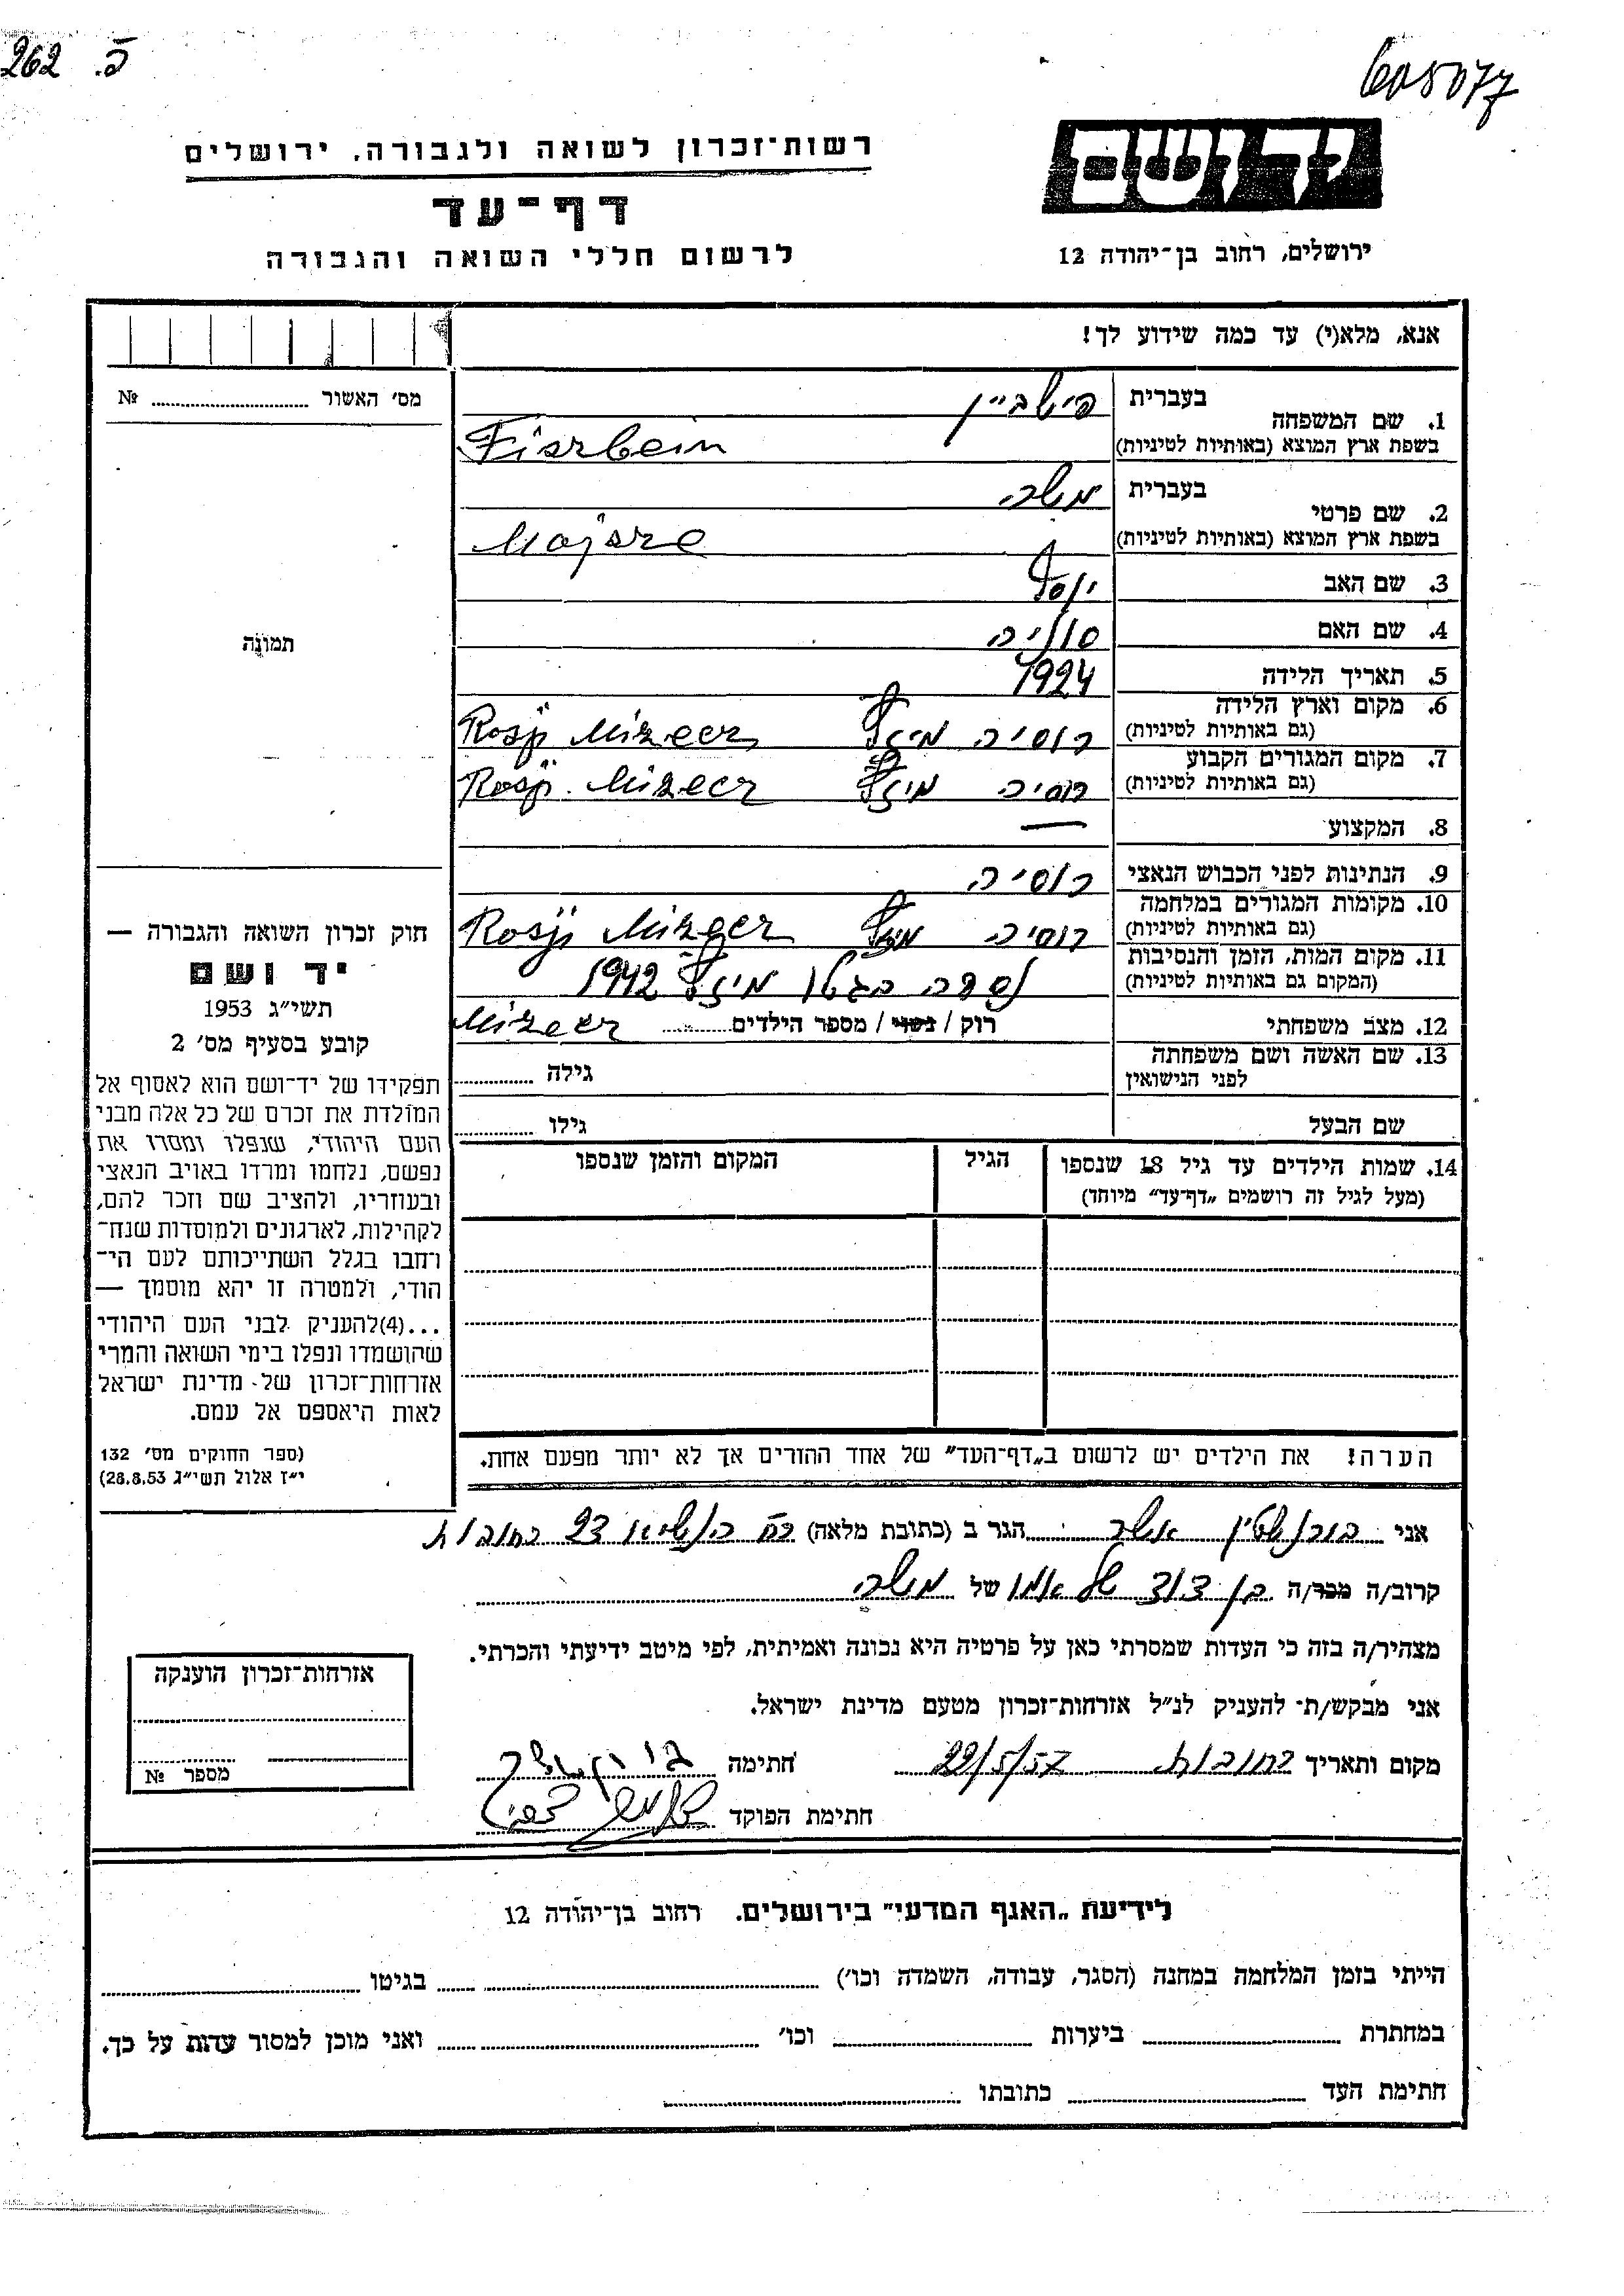 262 ב.
605077
יד ושם
רשות־זכרון לשואה ולגבורה, ירושלים
דף־עד
לרשום חללי השואה והגבורה
ירושלים, רחוב בן־יהודה 12
אנא, מלא(י) עד כמה שידוע לך!
מס׳ האשור № 
1. שם המשפחה בעברית פישביין
בשפת ארץ המוצא (באותיות לטיניות) Fisrbein
2. שם פרטי בעברית משה
בשפת ארץ המוצא (באותיות לטיניות) Mojsze
3. שם האב יוסף
4. שם האם סוניה
5. תאריך הלידה 1924
6. מקום וארץ הלידה רוסיה
(גם באותיות לטיניות) Rosji Mizecz
7. מקום המגורים הקבוע רוסיה
(גם באותיות לטיניות) Rosji. Mizecz
8. המקצוע —
9. הנתינות לפני הכבוש הנאצי רוסיה
10. מקומות המגורים במלחמה רוסיה
(גם באותיות לטיניות) Rosji Mizecz
11. מקום המות, הזמן והנסיבות נספה בגטו 1942
(המקום גם באותיות לטיניות) Mizecz
12. מצב משפחתי רוק / נשוי / מספר הילדים
13. שם האשה ושם משפחתה
לפני הנישואין גילה
שם הבעל גילו
14. שמות הילדים עד גיל 18 שנספו הגיל המקום והזמן שנספו
(מעל לגיל זה רושמים „דף־עד״ מיוחד)
הערה! את הילדים יש לרשום ב„דף־העד״ של אחד ההורים אך לא יותר מפעם אחת.
תמונה
חוק זכרון השואה והגבורה —
יד ושם
תשי״ג 1953
קובע בסעיף מס׳ 2
תפקידו של יד־ושם הוא לאסוף אל
המולדת את זכרם של כל אלה מבני
העם היהודי, שנפלו ומסרו את
נפשם, נלחמו ומרדו באויב הנאצי
ובעוזריו, ולהציב שם וזכר להם,
לקהילות, לארגונים ולמוסדות שנח־
רחבו בגלל השתייכותם לעם הי־
הודי, ולמטרה זו יהא מוסמך —
...(4)להעניק לבני העם היהודי
שהושמדו ונפלו בימי השואה והמרי
אזרחות־זכרון של מדינת ישראל
לאות היאספם אל עמם.
(ספר החוקים מס׳ 132
י״ז אלול תשי״ג 28.8.53)
אני בורנשטין אשר הגר ב (כתובת מלאה) רח הנשיא 23 רחובות
קרוב/ה מכר/ה בן דוד של אמו של משה
מצהיר/ה בזה כי העדות שמסרתי כאן על פרטיה היא נכונה ואמיתית, לפי מיטב ידיעתי והכרתי.
אני מבקש/ת להעניק לנ״ל אזרחות־זכרון מטעם מדינת ישראל.
מקום ותאריך רחובות 22/5/57 חתימה
חתימת הפוקד
אזרחות־זכרון הוענקה
מספר №
לידיעת „האגף המדעי״ בירושלים. רחוב בן־יהודה 12
הייתי בזמן המלחמה במחנה (הסגר, עבודה, השמדה וכו׳) בגיטו
במחתרת ביערות וכו׳ ואני מוכן למסור עדות על כך.
חתימת העד כתובתו